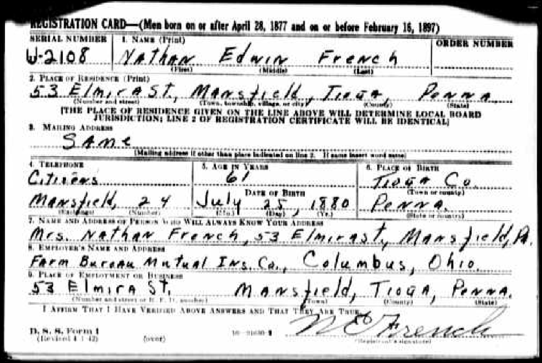 REGISTRATION CARD—(Men born on or after April 28, 1877 and on or before February 16, 1897)
SERIAL NUMBER 1. NAME (Print) ORDER NUMBER
U-2108 Nathan Edwin French
(First) (Middle) (Last)
2. PLACE OF RESIDENCE (Print)
53 Elmira St, Mansfield, Tioga, Penna
(Number and street) (Town, township, village, or city) (County) (State)
[THE PLACE OF RESIDENCE GIVEN ON THE LINE ABOVE WILL DETERMINE LOCAL BOARD
JURISDICTION; LINE 2 OF REGISTRATION CERTIFICATE WILL BE IDENTICAL]
3. MAILING ADDRESS
Same
[Mailing address if other than place indicated on line 2. If same insert word same]
4. TELEPHONE 5. AGE IN YEARS 6. PLACE OF BIRTH
Citizens 61 Tioga Co.
DATE OF BIRTH (Town or county)
Mansfield, 24 July 25, 1880 Penna.
(Exchange) (Number) (Mo.) (Day) (Yr.) (State or country)
7. NAME AND ADDRESS OF PERSON WHO WILL ALWAYS KNOW YOUR ADDRESS
Mrs. Nathan French, 53 Elmira st, Mansfield, Pa.
8. EMPLOYER'S NAME AND ADDRESS
Farm Bureau Mutual Ins. Co., Columbus, Ohio.
9. PLACE OF EMPLOYMENT OR BUSINESS
53 Elmira St. Mansfield, Tioga, Penna.
(Number and street or R. F. D. number) (Town) (County) (State)
I AFFIRM THAT I HAVE VERIFIED ABOVE ANSWERS AND THAT THEY ARE TRUE.
D. S. S. Form 1
(Revised 4-1-42) (over) N E French
(Registrant's signature)